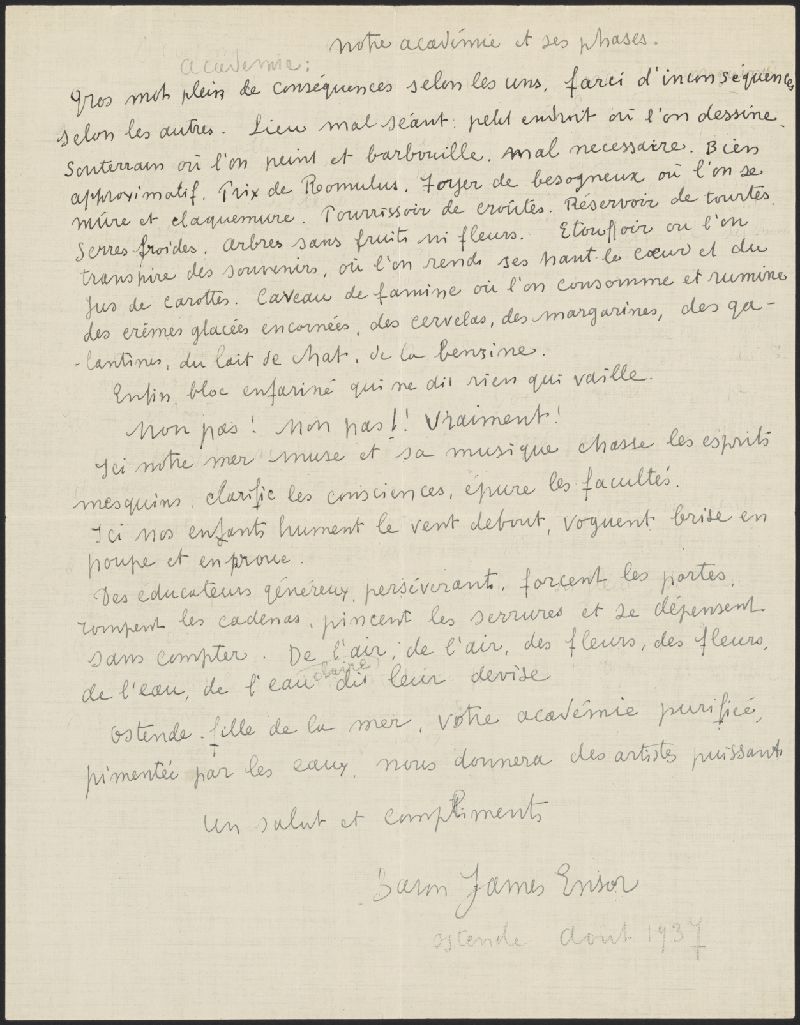 notre académie et ses phases.
Académie:
Gros mot plein de conséquences selon les uns, farci d'inconséquences
selon les autres. Lieu mal séant: petit endroit où l'on dessine.
Souterrain où l'on peint et barbouille. mal necessaire. Bien
approximatif. Prix de Roomulus. Foyer de besogneux où l'on se
mûre et claquemure. Pourrissoir de croûtes. Réservoir de tourtes.
Serres froides. Arbres sans fruits ni fleurs. Etouffoir ou l'on
transpire des souvenirs, où l'on rend ses haut-le cœur et du
jus de carottes. Caveau de famine où l'on consomme et rumine
des crèmes glacées encornées, des cervelas, des margarines, des ga-
-lantines, du lait de chat, de la benzine.
Enfin bloc enfariné qui ne dit rien qui vaille.
Non pas! Non pas!! Vraiment!
Ici notre mer muse et sa musique chasse les esprits
mesquins, clarifie les consciences, épure les facultés.
Ici nos enfants hument le vent debout, voguent brise en
poupe et en proue.
Des educateurs généreux, persévérants, forcent les portes,
rompent les cadenas, pincent les serrures et se dépensent
sans compter. De l'air, de l'air, des fleurs, des fleurs,
de l'eau, de l'eau claire dit leur devise
Ostende. fille de la mer, votre académie purifiée,
pimentée par les eaux, nous donnera des artistes puissants
Un salut et compliments
Baron James Ensor
Ostende Aout 1937